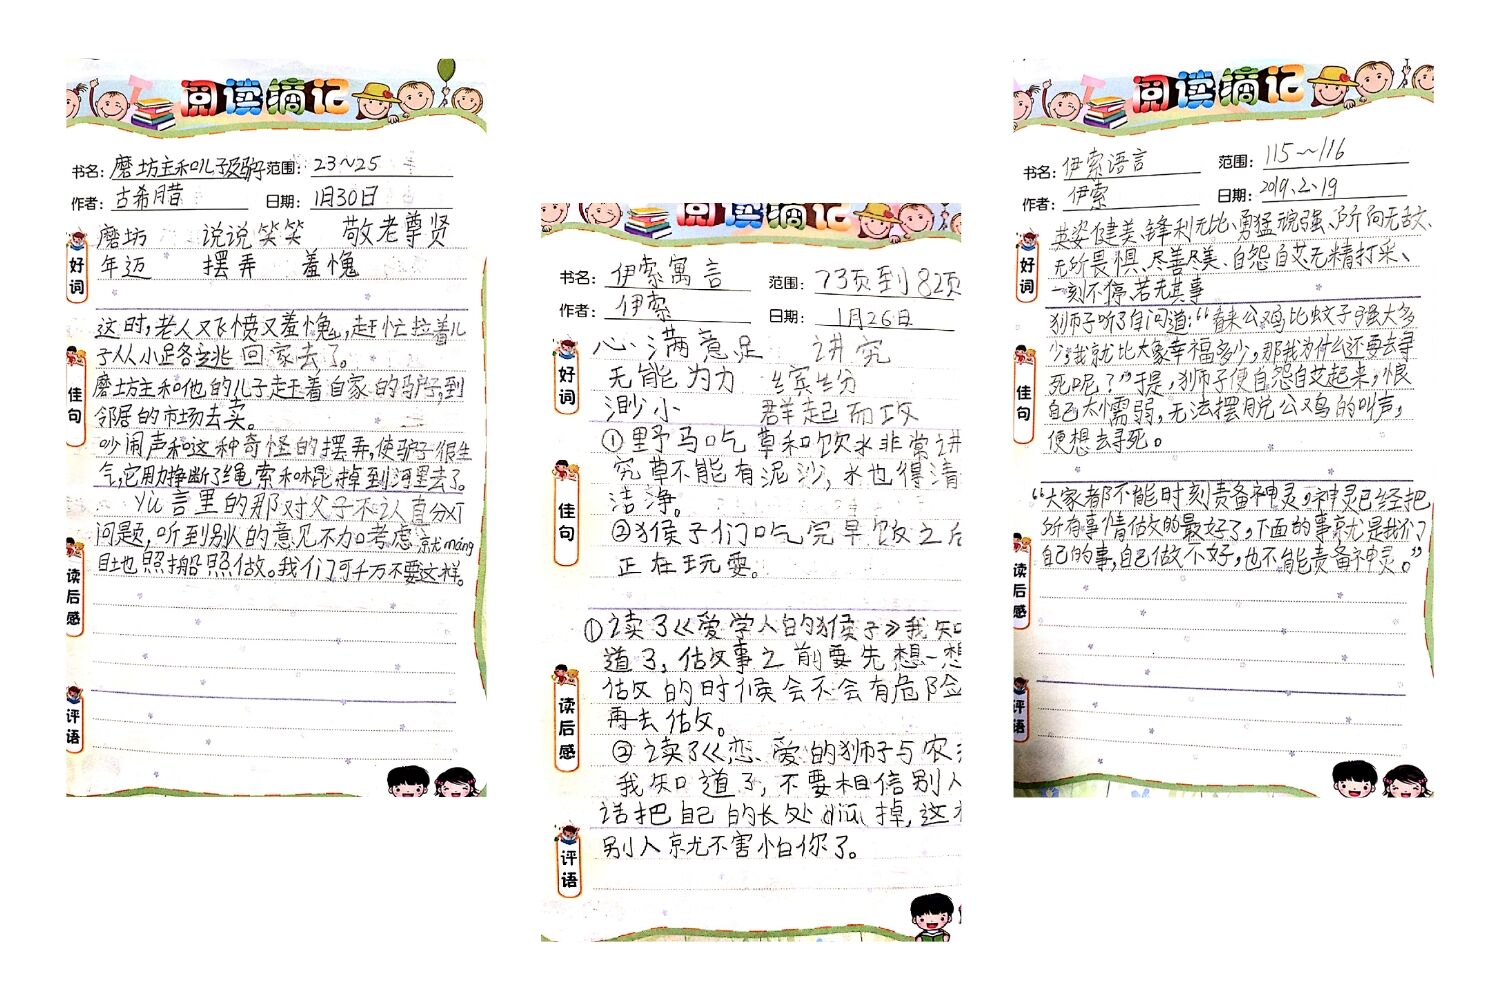 阅读摘记
书名：磨坊主和儿子及驴子 范围：23~25
作者：古希腊 日期：1月30日
好词
磨坊 说说笑笑 敬老尊贤
年迈 摆弄 羞愧
佳句
这时，老人又气愤又羞愧，赶忙拉着儿
子从小路逃回家去了。
磨坊主和他的儿子赶着自家的驴子，到
邻居的市场去卖。
吵闹声和这种奇怪的摆弄，使驴子很生
气，它用力挣断了绳索和棍，掉到河里去了。
读后感
yù言里的那对父子不认真分对
问题，听到别人的意见不加考虑，就máng
目地照搬照做。我们可千万不要这样。
评语
阅读摘记
书名：伊索寓言 范围：73页到82页
作者：伊索 日期：1月26日
好词
心满意足 讲究
无能为力 缤纷
渺小 群起而攻
佳句
①野马吃草和饮水非常讲
究草不能有泥沙，水也得清
洁净。
②猴子们吃完早饭之后
正在玩耍。
读后感
①读了《爱学人的猴子》我知
道了，做事之前要先想一想
做的时候会不会有危险
再去做。
②读了《恋爱的狮子与农
我知道了，不要相信别人
话把自己的长处diū掉，这
别人就不害怕你了。
评语
阅读摘记
书名：伊索语言 范围：115~116
作者：伊索 日期：2019.2.19
好词
英姿健美、锋利无比、勇猛顽强、所向无敌、
无所畏惧、尽善尽美、自怨自艾无精打采、
一刻不停、若无其事
佳句
狮子听了自问道：“看来公鸡比蚊子强大多
少，我就比大象幸福多少，那我为什么还要去寻
死呢？”于是，狮子便自怨自艾起来，恨
自己太懦弱，无法摆脱公鸡的叫声，
便想去寻死。
读后感
“大家都不能时刻责备神灵，神灵已经把
所有事情做的最好了，下面的事就是我们
自己的事，自己做不好，也不能责备神灵。”
评语